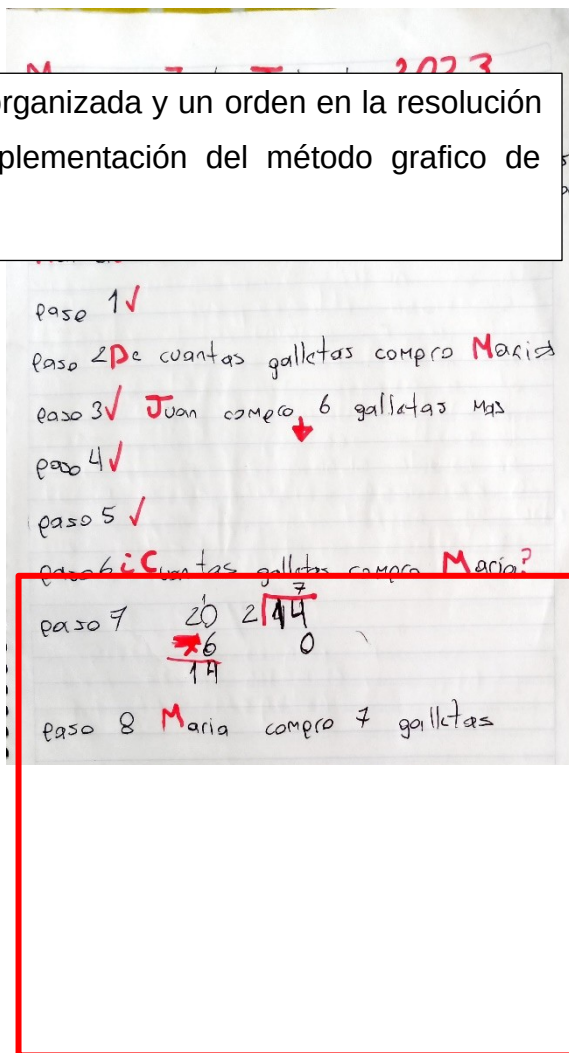 2023
organizada y un orden en la resolución
plementación del método grafico de
paso 1√
paso 2 De cuantas galletas compro Maria
paso 3√ Juan compro 6 galletas mas
paso 4√
paso 5 √
paso 6 ¿Cuantas galletas compro Maria?
7
paso 7 20 2 14
6 0
14
paso 8 Maria compro 7 galletas